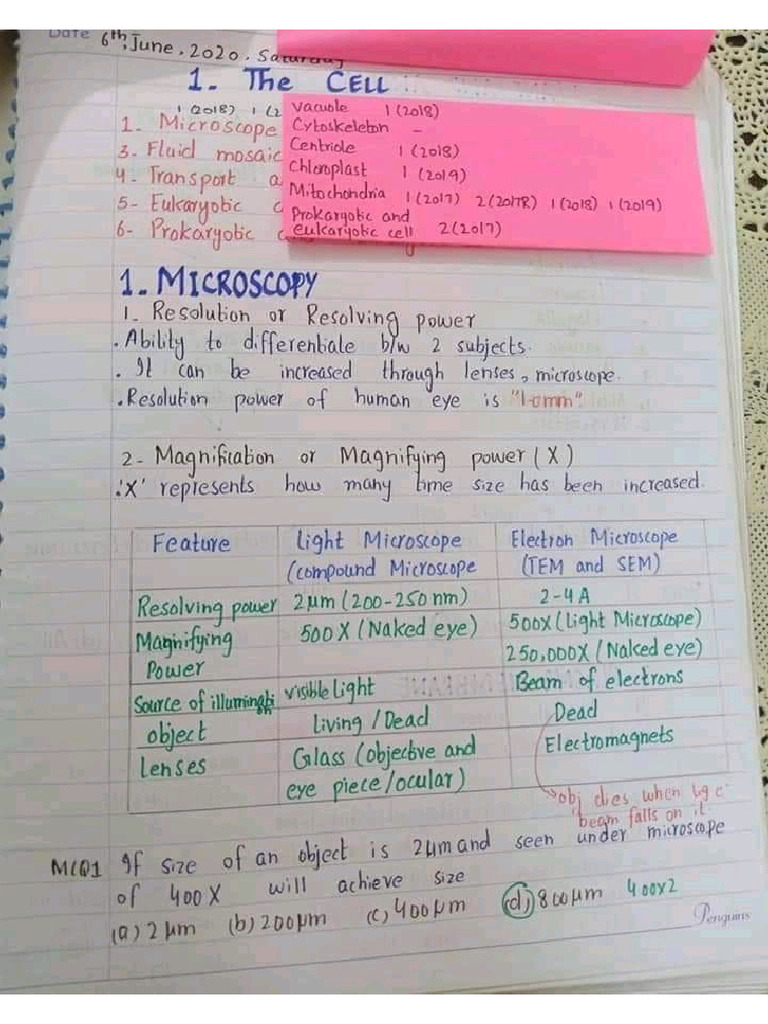 Date 6th, June, 2020. Saturday
1. The CELL
1 (2018) 1 (2
1. Microscope
3. Fluid mosaic
4. Transport a
5- Eukaryotic c
6- Prokaryotic
Vacuole 1 (2018)
Cytoskeleton -
Centriole 1 (2018)
Chloroplast 1 (2019)
Mitochondria 1 (2017) 2 (2017R) 1 (2018) 1 (2019)
Prokaryotic and
eukaryotic cell 2 (2017)
1. MICROSCOPY
1. Resolution or Resolving power
. Ability to differentiale b/w 2 subjects.
. It can be increased through lenses, microscope.
. Resolution power of human eye is "1.0mm".
2- Magnification or Magnifying power (X)
.'X' represents how many time size has been increased.
Feature Light Microscope Electron Microscope
(compound Microscope (TEM and SEM)
Resolving power 2μm (200-250 nm) 2-4 A
Magnifying 500X (Naked eye) 500X (Light Microscope)
Power 250,000X (Naked eye)
Source of illuminati visible Light Beam of electrons
on
object Living / Dead Dead
lenses Glass (objective and Electromagnets
eye piece/ocular)
obj dies when
beam falls on it
MCQ1 If size of an object is 2μm and seen under microscope
of 400X will achieve size
(a) 2μm (b) 200μm (c) 400μm (d) 800μm 400x2
Penguins